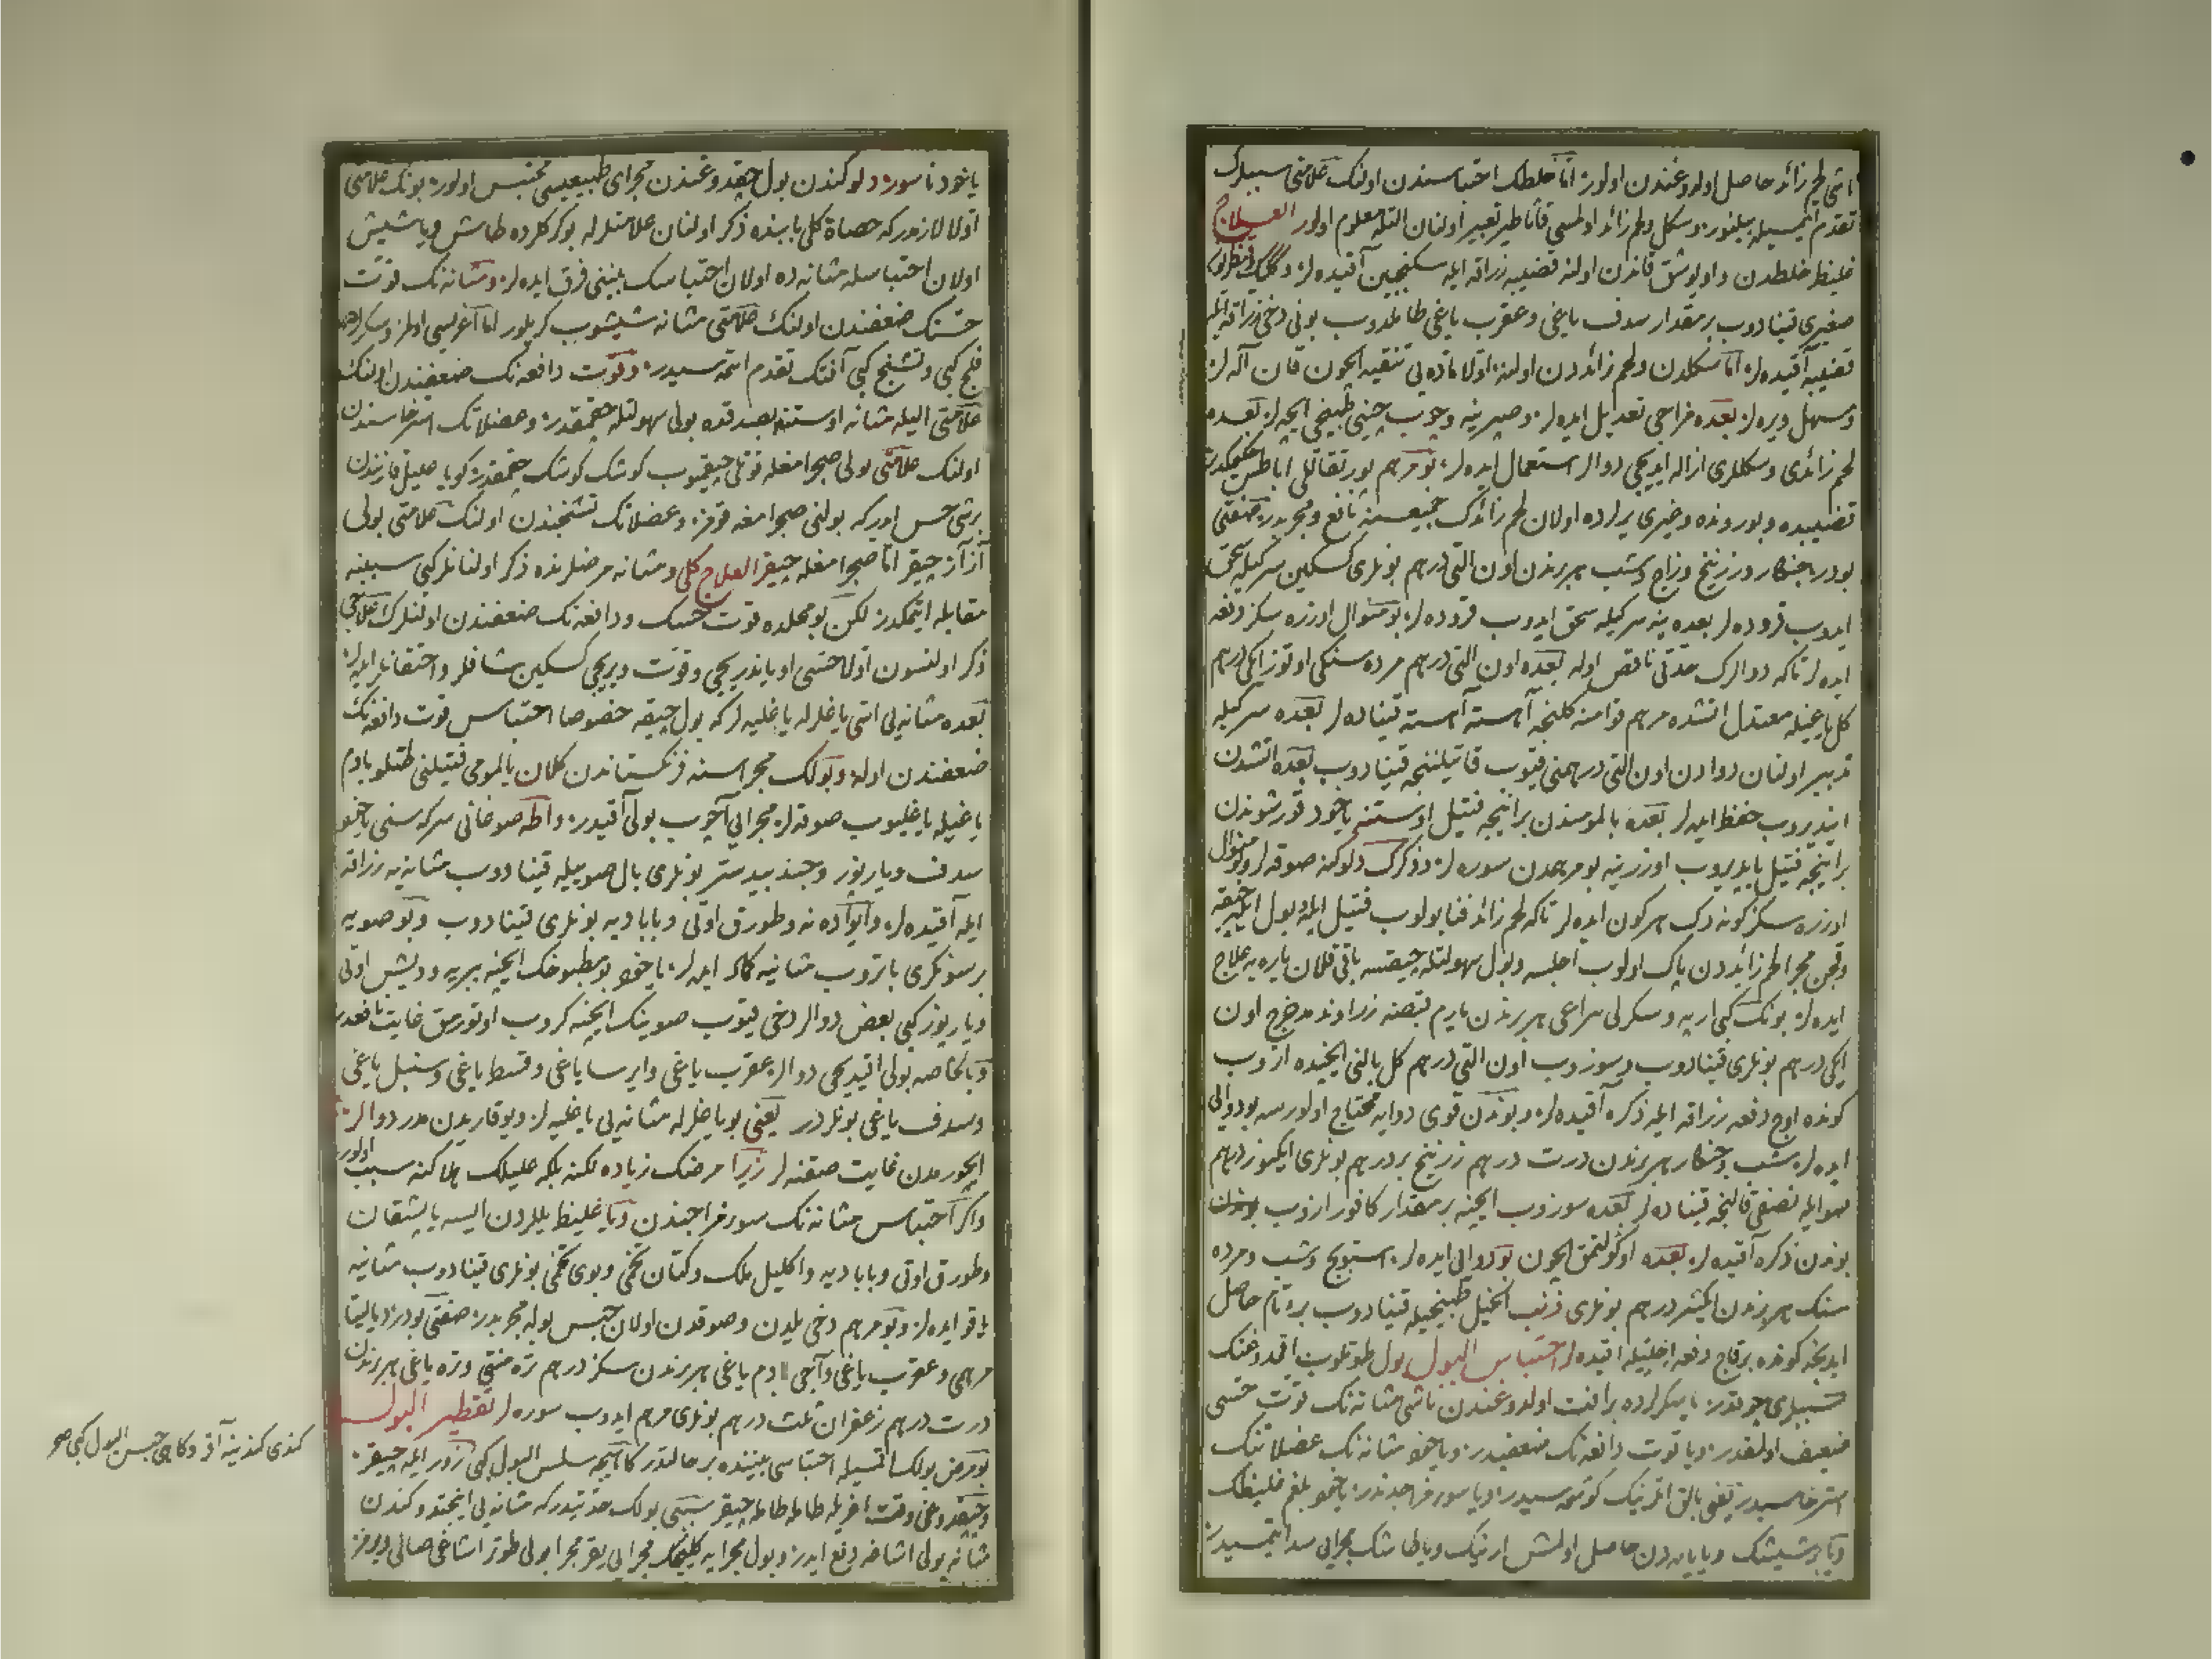 اتی لحم زائد حاصل اولدوغندن اولور اما خلطك احتباسندن اولنك علامتی سببلرك
تقدم ایتمسیله بیلنور وسكل ولحم زائد اولمسی قاثاطیر تعبیر اولنان التله معلوم اولور العلاج
غلیظ خلطدن واویوشق قاندن اولنه قضیبه زراقه ایله سكنجبین آقیده لر
صغیری قینادوب بر مقدار سدف یاغی وعقرب یاغی طاملدوب بونی دخی زراقه ایله
قضیبه آقیده لر اما سكلدن ولحم زائددن اولنه اولا ماده یی تنقیه ایچون قان آله لر
ومسهل ویره لر بعده مزاجی تعدیل ایده لر وصبرینه وجوب چینی طبیخی ایچه لر بعده
لحم زائدی وسكللری ازاله ایدیجی دوالر استعمال ایده لر بو مرهم پورتقاللی اماطس حكیمكدر
قضیبده وبوروnده وغیری یرلرده اولان لحم زائدك جمیعسنه نافع ومجربدر صنعتی
بودر جنكار وزرنیخ وزاج وشب هر برندن اون التی درهم بونلری كسكین سركیله سحق
ایدوب قروده لر بعده ینه سركیله سحق ایدوب قروده لر بو منوال اوزره سكز دفعه
ایده لر تاكه دوالرك حدتی ناقص اوله بعده اون التی درهم مرده سنكی اوتوز ایكی درهم
كل یاغیله معتدل اتشده مرهم قوامنه كلنجه آهسته آهسته قیناده لر بعده سركیله
تدبیر اولنان دوادن اون التی درهمنی قیوب قاتیلنجه قینادوب بعده اتشدن
ایندیروب حفظ ایده لر بعده بالمومندن بر اینجه فتیل اوستنه یاخود قورشوندن
بر اینجه فتیل یاپدیروب اوزرینه بو مرهمدن سوره لر وذكرك دلوكنه صوقه لر وبو منوال
اوزره سكز كونه دك هر كون ایده لر تاكه لحم زائد فنا بولوب فتیل ایله وبول ایله چیقه
وقچن مجرا لحم زائددن پاك اولوب آجلسه وبول سهولتله چیقسه باقی قلان یاره یه علاج
ایده لر بونك كبی ارپه وسكرلی سراعی هر برندن یارم قبضه زراوند مدحرج اون
ایكی درهم بونلری قینادوب وسوزوب اون التی درهم كل بالنی ایچنده ازوب
كونده اوچ دفعه زراقه ایله ذكره آقیده لر وبوندن قوی دوایه محتاج اولورسه بو دوایی
ایده لر شب وجنكار هر برندن درت درهم زرنیخ بر درهم بونلری ایكیوز درهم
صو ایله نصفی قالنجه قیناده لر بعده سوزوب ایچنه بر مقدار كافور ازوب
بوندن ذكره آقیده لر بعده اوكولتمق ایچون بو دوایی ایده لر استوبج وشب ومرده
سنك هر برندن ایكیشر درهم بونلری ذنب الخیل طبیخیله قینادوب بره تام حاصل
ایدنجه كونده بر قاج دفعه احلیله اقیده لر احتباس البول بول طوتلوب اقمدوغنك
سببلری چوقدر یا سكرلرده بر افت اولدوغندن ناشی مشانه نك قوت حسی
ضعیف اولمقدر ویا قوت دافعه نك ضعفیدر ویاخود مشانه نك عضلاتنك
استرخاسیدر یعنی بالق اتلرینك كوشمه سیدر ویا سوء مزاجدندر یاخود بلغم غلیظك
ویا بر شیشك ویا یاره دن حاصل اولمش ارنیك ویا طاشك مجرایی سد ایتمسیدر
یاخود ناسور دلوكندن بول چیقدوغندن مجرای طبیعیسی محتبس اولور بونك علامتی
اولا لازمدركه حصاة كلی بابنده ذكر اولنان علامتلرله بوكركلرده طاش ویا شیش
اولان احتباسله مشانه ده اولان احتباسك بیننی فرق ایده لر ومشانه نك قوت
حسنك ضعفندن اولنك علامتی مشانه شیشوب كریلور اما آغریسی اولمز
فلج كبی وتشنج كبی آفتك تقدم اتمه سیدر وقوت دافعه نك ضعفندن اولنك
علامتی الیله مشانه اوستنه بصدقده بولی سهولتله چقمقدر وعضلاتك استرخاسندن
اولنك علامتی بولی صچرامغله قوتلی چیقمیوب كوشك كوشك چقمقدر كویا علیل قازندن
برشی حس ایدركه بولنی صچرامغه قومز وعضلاتك تشنجندن اولنك علامتی بولی
آز آز چیقر اما صچرامغله چیقر العلاج كلی ومشانه مرضلرنده ذكر اولنانلر كبی سببنه
مقابله ایتمكدر لكن بو محلده قوت حسك ودافعه نك ضعفندن اولنلرك علاجی
ذكر اولنسون اولا حسی اویاندیریجی وقوت ویریجی كسكین شافلر واحتقانلر ایده لر
بعده مشانه یی اتی یاغلرله یاغلیه لركه بول چیقه خصوصا احتباس قوت دافعه نك
ضعفندن اوله وبولك مجراسنه فرنكستاندن كلان بالمومی فتیلنی طتلو بادم
یاغیله یاغلیوب صوقه لر مجرایی آچوب بولی آقیدر واطه صوغانی سركه سنی یاخود
سدف ویارپوز وجند بیدستر بونلری بال صوییله قینادوب مشانه یه زراقه
ایله آقیده لر وآیوآده نه وطورق اوتی وبابادیه بونلری قینادوب وبو صویه
بر سونكری باتروب مشانیه كماد ایده لر یاخود بو مطبوخك ایچنه بیبریه وودیشن اوتی
ویارپوز كبی بعض دوالر دخی قیوب صوینك ایچنه كروب اوتورمق غایت نافعدر
وبالخاصه بولی اقیدیجی دوالر عقرب یاغی وایرسا یاغی وقسط یاغی وسنبل یاغی
وسدف یاغی بونلردر یعنی بو یاغلرله مشانه یی یاغلیه لر ویوقاریدن مدر دوالر
ایچورمدن غایت صقنه لر زیرا مرضك زیاده لكنه بلكه علیلك هلاكنه سبب اولور
واكر احتباس مشانه نك سوء مزاجندن ویا غلیظ یللردن ایسه یا پشقان
وطورق اوتی وبابادیه واكلیل ملك وكتان تخمی وبوی تخمی بونلری قینادوب مشانیه
یاقو ایده لر وبو مرهم دخی یلدن وصوقدن اولان حبس بوله مجربدر صنعتی بودر دیالیتا
مرهمی وعقرب یاغی وآجی بادم یاغی هر برندن سكز درهم تره منتی وتره یاغی هر برندن
درت درهم زعفران ثلث درهم بونلری مرهم ایدوب سوره لر تقطیر البول
بو مرض بولك اقمسیله احتباسی بیننده بر حالتدر كاهیجه سلس البول كبی زور ایله چیقر
وچیقدوغی وقت آغریله طامله طامله چیقر سببی بولك حدتیدركه مشانه یی اینجتدوكندن
مشانه بولی اشاغه دفع ایدر وبول مجرایه كلیجك مجرایی یقر مجرا بولی طوتر اشاغی صالی ویرمز
كندی كندینه آقر وكاهی حبس البول كبی